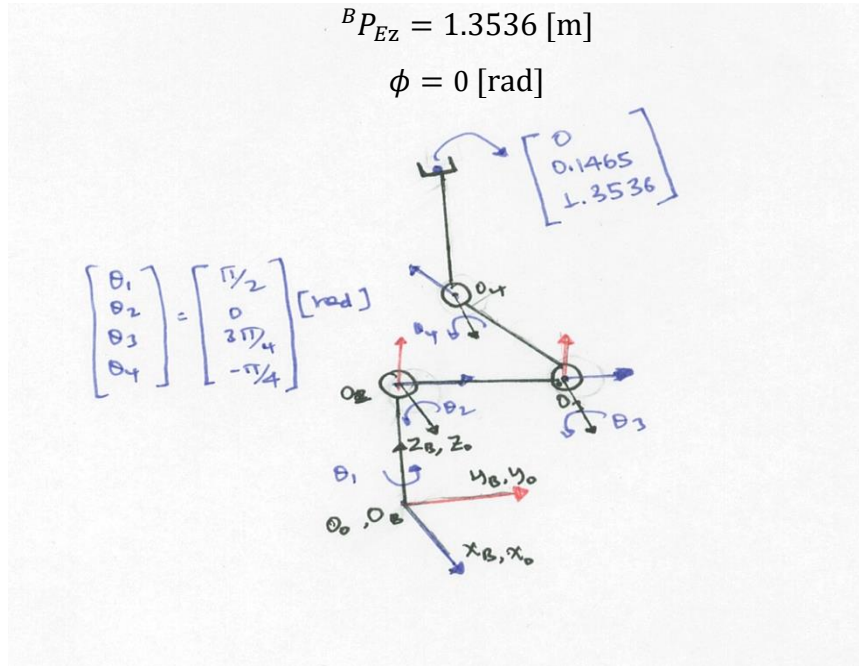 ᴮP_Ez = 1.3536 [m]
ϕ = 0 [rad]
[0
0.1465
1.3536]
[θ₁ θ₂ θ₃ θ₄] = [π/2 0 3π/4 -π/4] [rad]
O₄
θ₄
O₂
θ₂
O₃
θ₃
Z_B, Z₀
θ₁
y_B, y₀
O₀, O_B
x_B, x₀